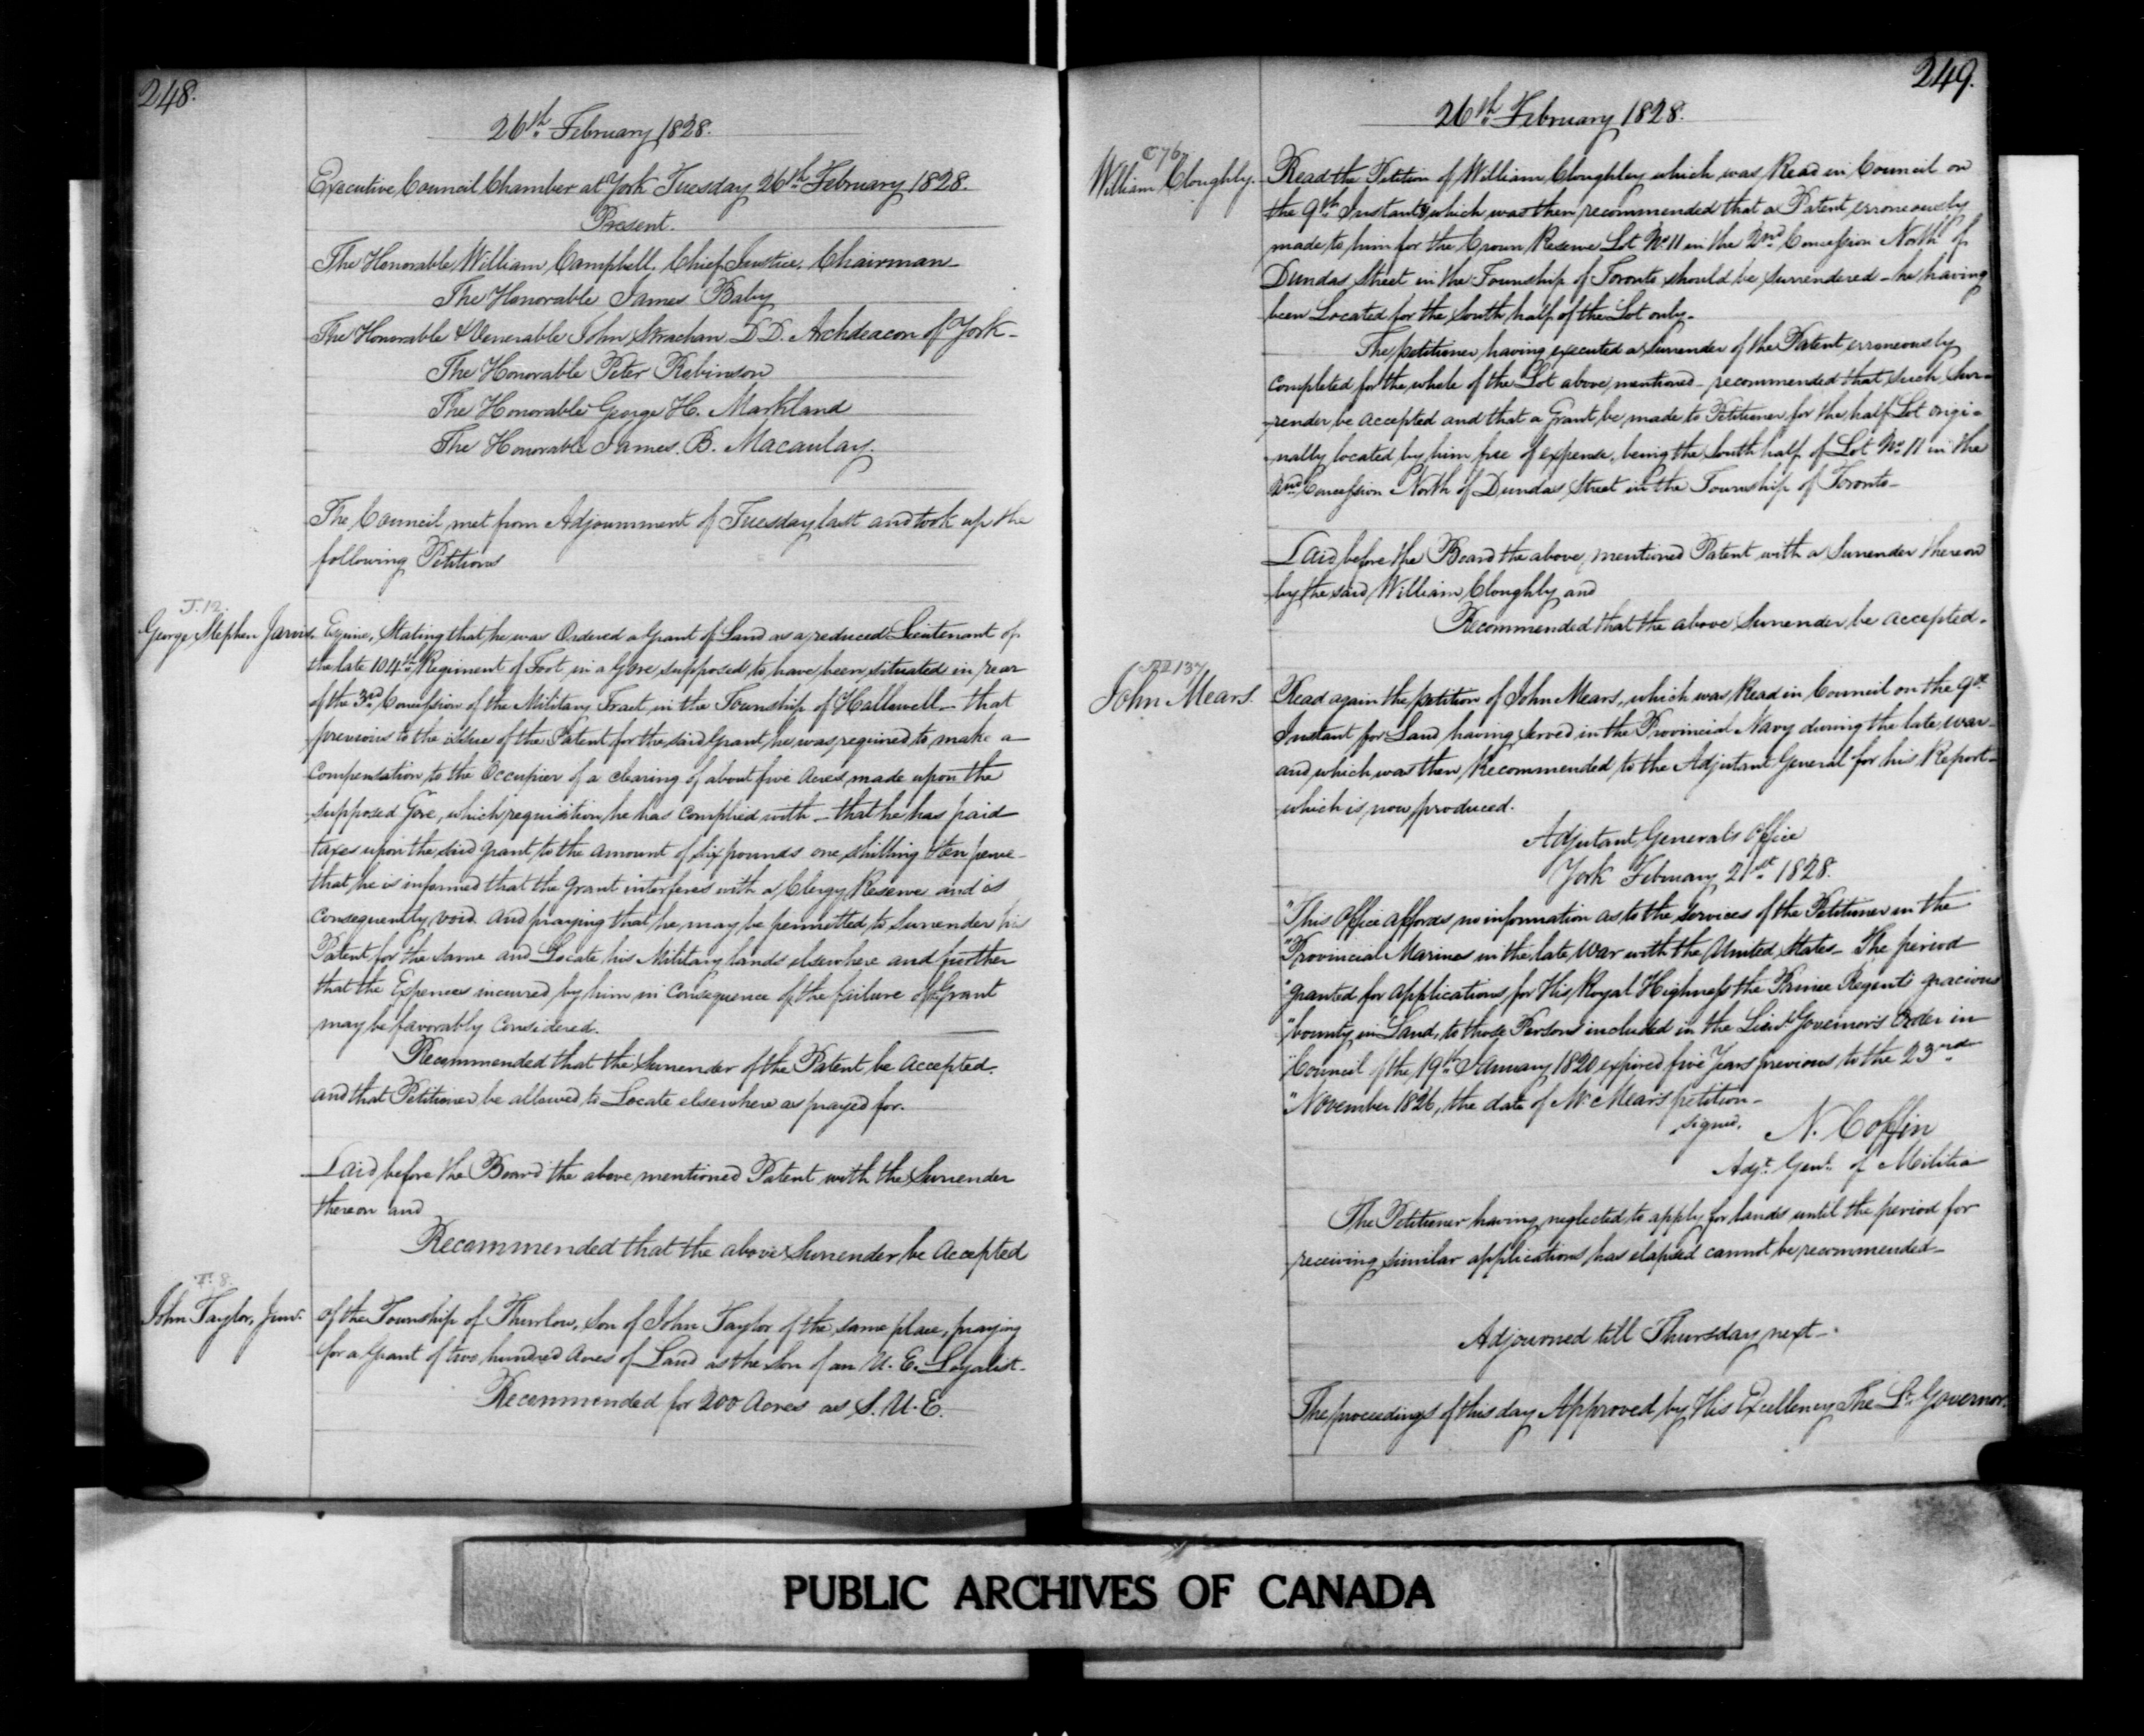 248.
26th February 1828.
Executive Council Chamber at York Tuesday 26th February 1828.
Present.
The Honorable William Campbell, Chief Justice, Chairman
The Honorable James Baby
The Honorable & Venerable John Strachan D.D. Archdeacon of York
The Honorable Peter Robinson
The Honorable George H. Markland
The Honorable James. B. Macaulay.
The Council met from Adjournment of Tuesday last and took up the
following Petitions
J. 12.
George Stephen Jarvis. Esquire, Stating that he was Ordered a Grant of Land as a reduced Lieutenant of
the late 104th Regiment of Foot in a Gore supposed to have been situated in rear
of the 3rd Concession of the Military Tract in the Township of Hallowell - that
previous to the issue of the Patent for the said Grant, he was required to make a
Compensation to the Occupier of a clearing of about five Acres made upon the
supposed Gore, which requisition he has complied with - that he has paid
taxes upon the said grant to the amount of six pounds one shilling & ten pence -
that he is informed that the grant interferes with a Clergy Reserve and is
Consequently void. And praying that he may be permitted to Surrender his
Patent for the same and Locate his Military lands elsewhere and further
that the Expences incurred by him in Consequence of the failure of Grant
may be favorably Considered.
Recommended that the Surrender of the Patent be Accepted.
and that Petitioner be allowed to Locate elsewhere as prayed for.
Laid before the Board the above mentioned Patent with the Surrender
thereon and
Recommended that the above Surrender be Accepted
T. 8.
John Taylor, Junr. of the Township of Thurlow, Son of John Taylor of the same place, praying
for a Grant of two hundred Acres of Land as the Son of an U. E. Loyalist.
Recommended for 200 Acres as S. U. E.
249.
26th February 1828.
C 76
William Cloughly. Read the Petition of William Cloughley which was Read in Council on
the 9th Instant & which was then recommended that a Patent erroneously
made to him for the Crown Reserve Lot No 11 in the 2nd Concession North of
Dundas Street in the Township of Toronto should be surrendered - he having
been Located for the South half of the Lot only.
The petitioner having executed a Surrender of the Patent erroneously
completed for the whole of the Lot above mentioned - recommended that such Sur-
render be accepted and that a Grant be made to Petitioner for the half Lot origi-
nally located by him free of expense, being the South half of Lot No 11 in the
2nd Concession North of Dundas Street in the Township of Toronto -
Laid before the Board the above mentioned Patent with a Surrender thereon
by the said William Cloughly and
Recommended that the above Surrender be accepted.
137
John Mears. Read again the petition of John Mears, which was Read in Council on the 9th
Instant for Land having served in the Provincial Navy during the late war -
and which was then Recommended to the Adjutant General for his Report -
which is now produced.
Adjutant Generals Office
York February 21st 1828.
"This Office affords no information as to the services of the Petitioner in the
"Provincial Marines in the late War with the United States - The period
"granted for applications for His Royal Highness the Prince Regents gracious
"bounty in Land, to those Persons included in the Lieut Governor's Order in
"Council of the 19th January 1820 expired five Years previous to the 23rd
"November 1826, the date of Mr Mears petition -
signed. N. Coffin
Adjt Genl of Militia
The Petitioner having neglected to apply for lands until the period for
receiving similar applications has elapsed cannot be recommended -
Adjourned till Thursday next -
The proceedings of this day Approved by His Excellency The Lt. Governor.
PUBLIC ARCHIVES OF CANADA